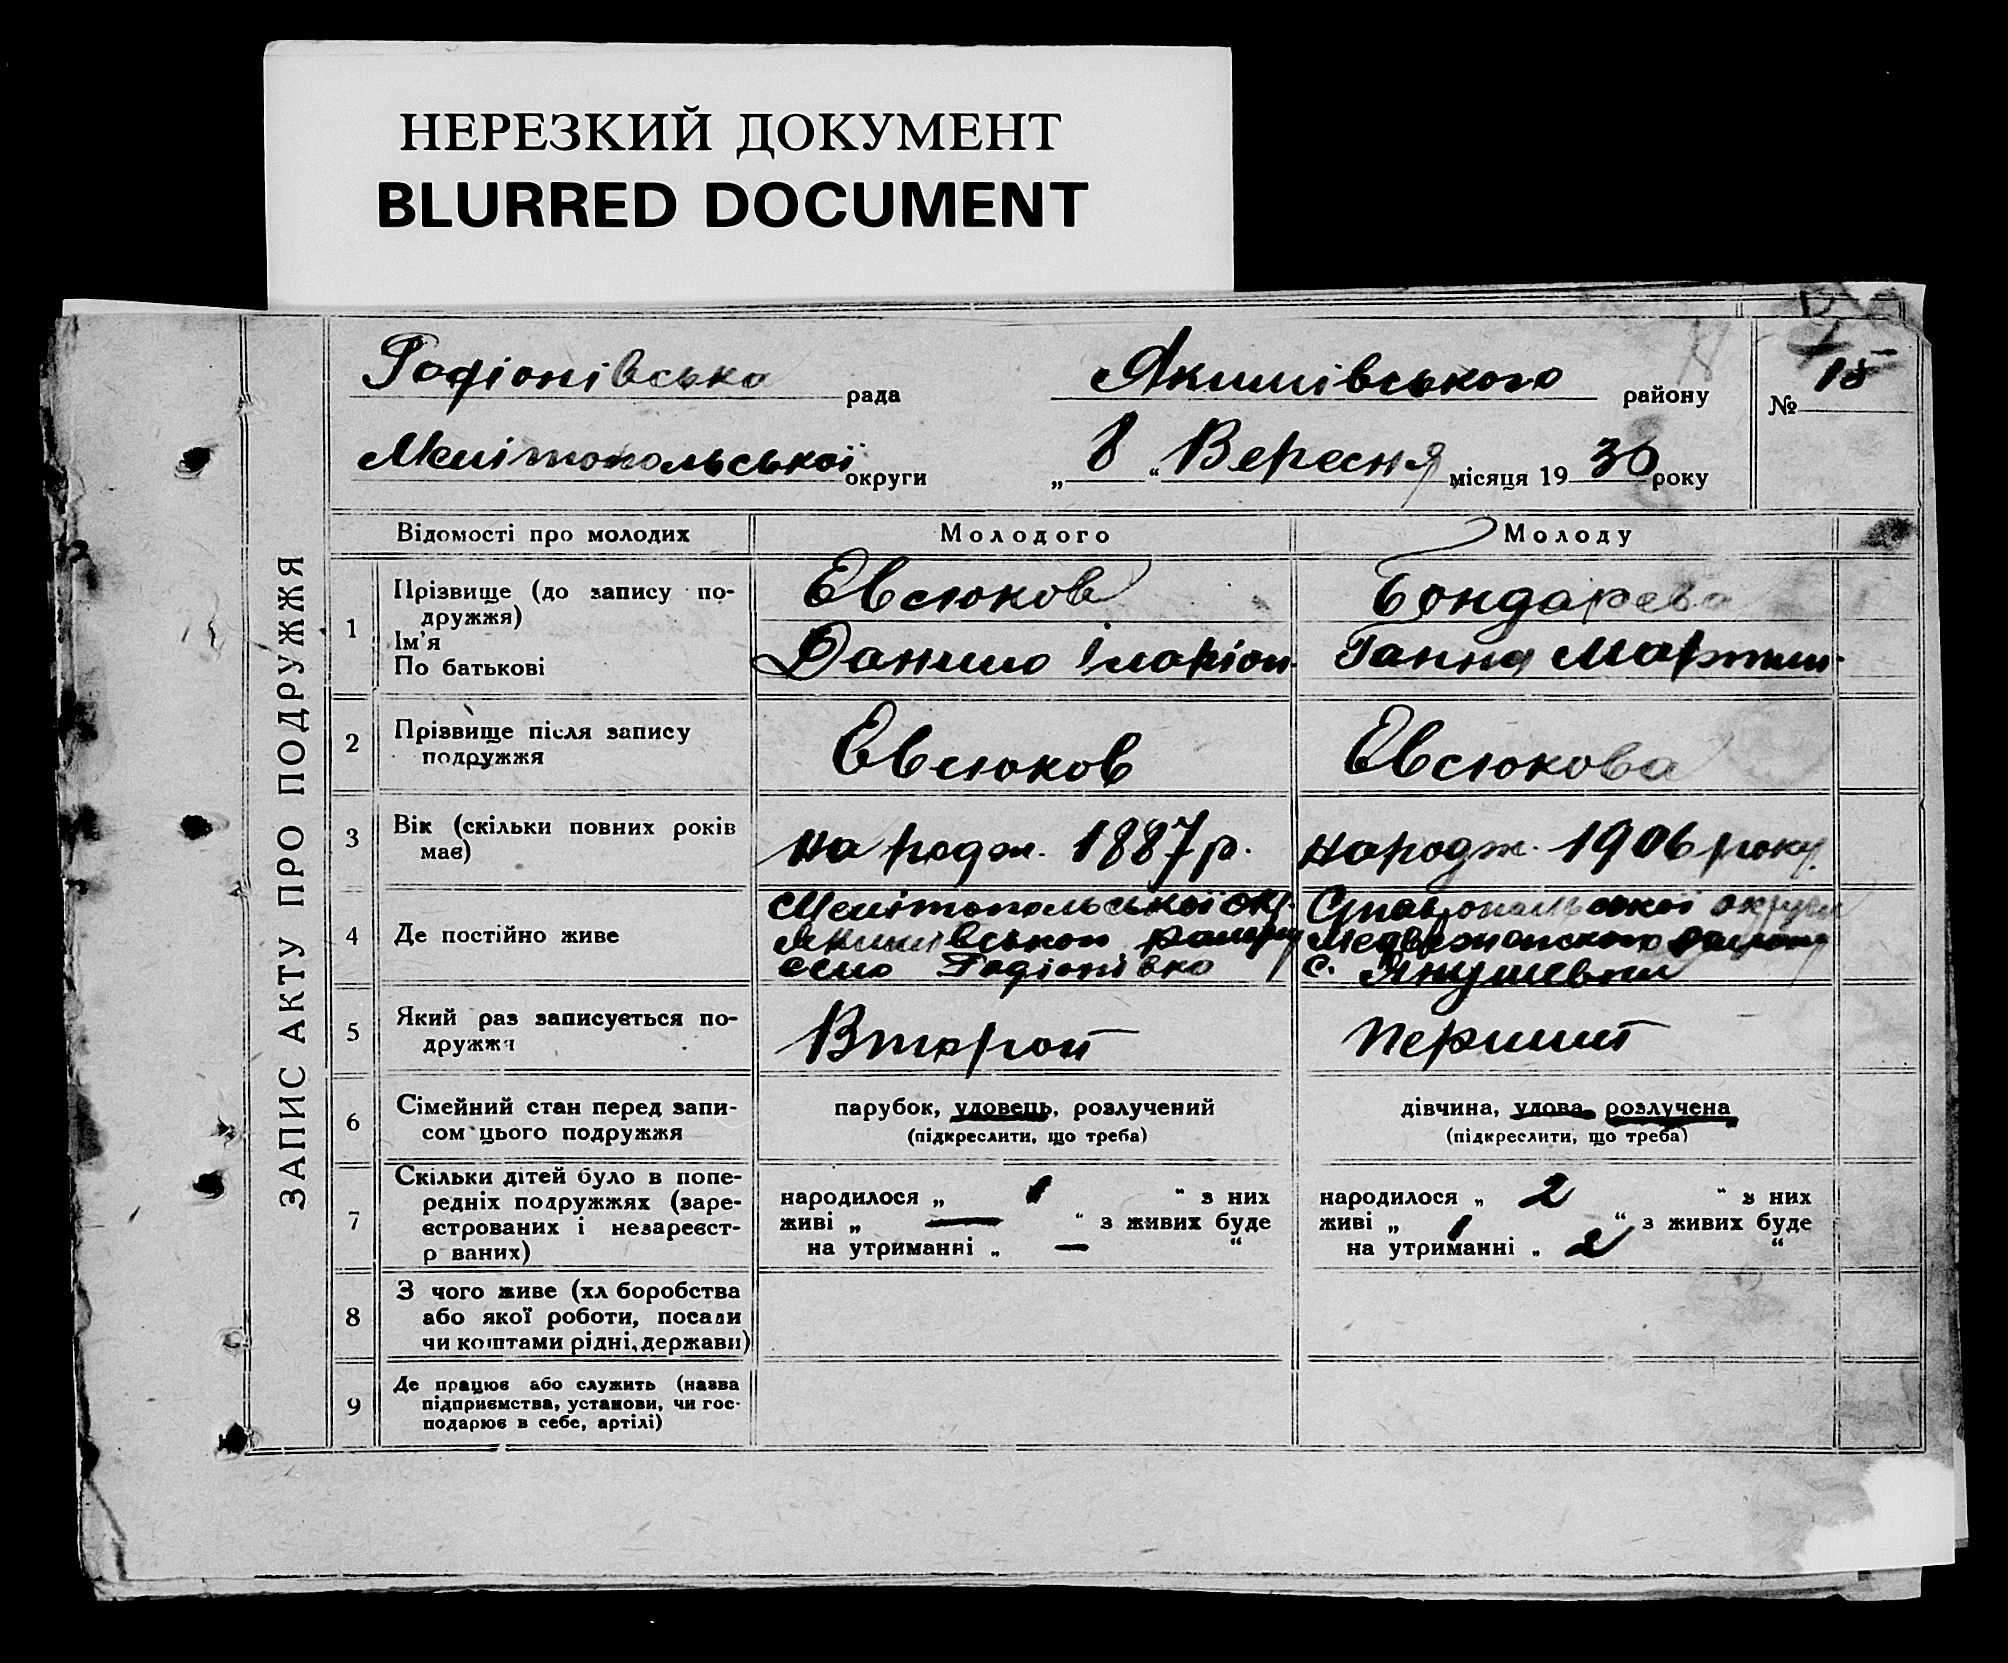 НЕРЕЗКИЙ ДОКУМЕНТ
BLURRED DOCUMENT
ЗАПИС АКТУ ПРО ПОДРУЖЖЯ
Родіонівська рада Якимівського району № 15
Мелітопольської округи „ 8 “ Вересня місяця 19 30 року
Відомості про молодих Молодого Молоду
1 Прізвище (до запису по-
дружжя) Евсюков Бондарева
Ім'я
По батькові Данило Іларіон. Ганна Мартин.
2 Прізвище після запису
подружжя Евсюков Евсюкова
3 Вік (скільки повних років
має) народж. 1887 р. народж. 1906 року
4 Де постійно живе
Мелітопольської окр. округи
Якимівського
село Родіонівка с.
5 Який раз записується по-
дружжя Второй перший
6 Сімейний стан перед запи-
сом цього подружжя
парубок, удовець, розлучений дівчина, удова розлучена
(підкреслити, що треба) (підкреслити, що треба)
7 Скільки дітей було в попе-
редніх подружжях (заре-
єстрованих і незареєст-
р ваних)
народилося „ 1 “ з них народилося „ 2 “ з них
живі „ — “ з живих буде живі „ 1 “ з живих буде
на утриманні „ — “ на утриманні „ 2 “
8 З чого живе (хл боробства
або якої роботи, посади
чи коштами рідні, держави)
9 Де працює або служить (назва
підприємства, установи, чи гос-
подарює в себе, артілі)